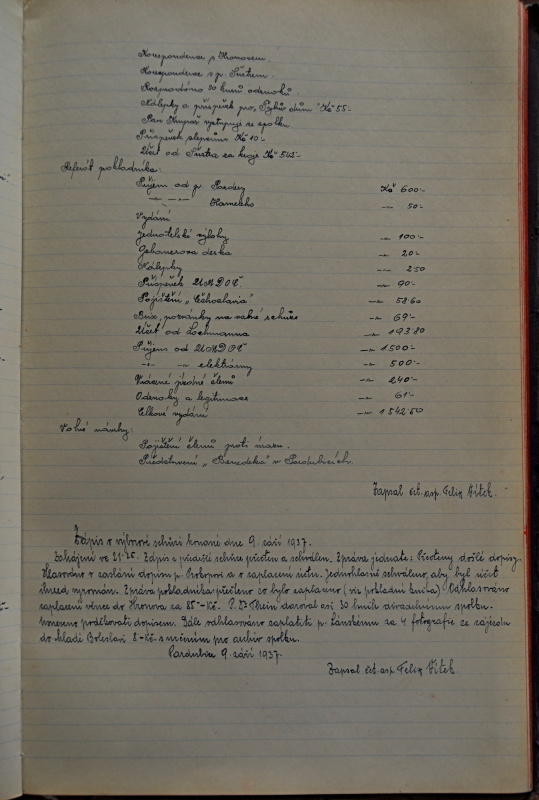 Korespondence s Hronovem.
Korespondence s p. Šustrem.
Rozprodáno 30 kusů odznaků.
Nálepky a příspěvek pro „Tyršův dům" Kč 55.-
Pan Krupař vystupuje ze spolku.
Příspěvek slepcům Kč 10.-
Účet od Šustra za kroje Kč 545.-
Referát pokladníka:
Příjem od p. Pardery Kč 600.-
-"- -"- -"- 50.-
Vydání
Jednatelské výlohy -"- 100.-
deska -"- 20.-
Nálepky -"- 2.50
Příspěvek ÚMDOČ. -"- 90.-
Pojištění „Čechoslavia" -"- 58.60
pozvánky na valné schůze -"- 69.-
Účet od Lochmanna -"- 193.80
Příjem od ÚMDOČ -"- 1500.-
-"- -"- elektrárny -"- 500.-
Vrácené jízdné členů -"- 240.-
Odznaky a legitimace -"- 61.-
Celkové vydání -"- 1542.50
Volné návrhy:
Pojištění členů proti úrazu.
Představení „Benedeka" v Pardubicích.
Zapsal Felix Vítek.
Zápis o výborové schůzi konané dne 9. září 1937.
Zahájení ve 21.25. Zápis z předešlé schůze přečten a schválen. Zpráva jednatele: Přečteny došlé dopisy.
Hlasováno o zaslání dopisu p. Prokopovi a o zaplacení účtu. Jednohlasně schváleno, aby byl účet
ihned vyrovnán. Zpráva pokladníka: přečteno co bylo zaplaceno (viz pokladní kniha). Odhlasováno
zaplacení věnce do Hronova za 85-Kč. P. daroval asi 30 knih divadelnímu spolku.
poděkovati dopisem. Dále odhlasováno zaplatiti p. Lánskému za 4 fotografie ze zájezdu
do Mladé Boleslavi 8-Kč. s určením pro archiv spolku.
Pardubice 9. září 1937.
Zapsal Felix Vítek.